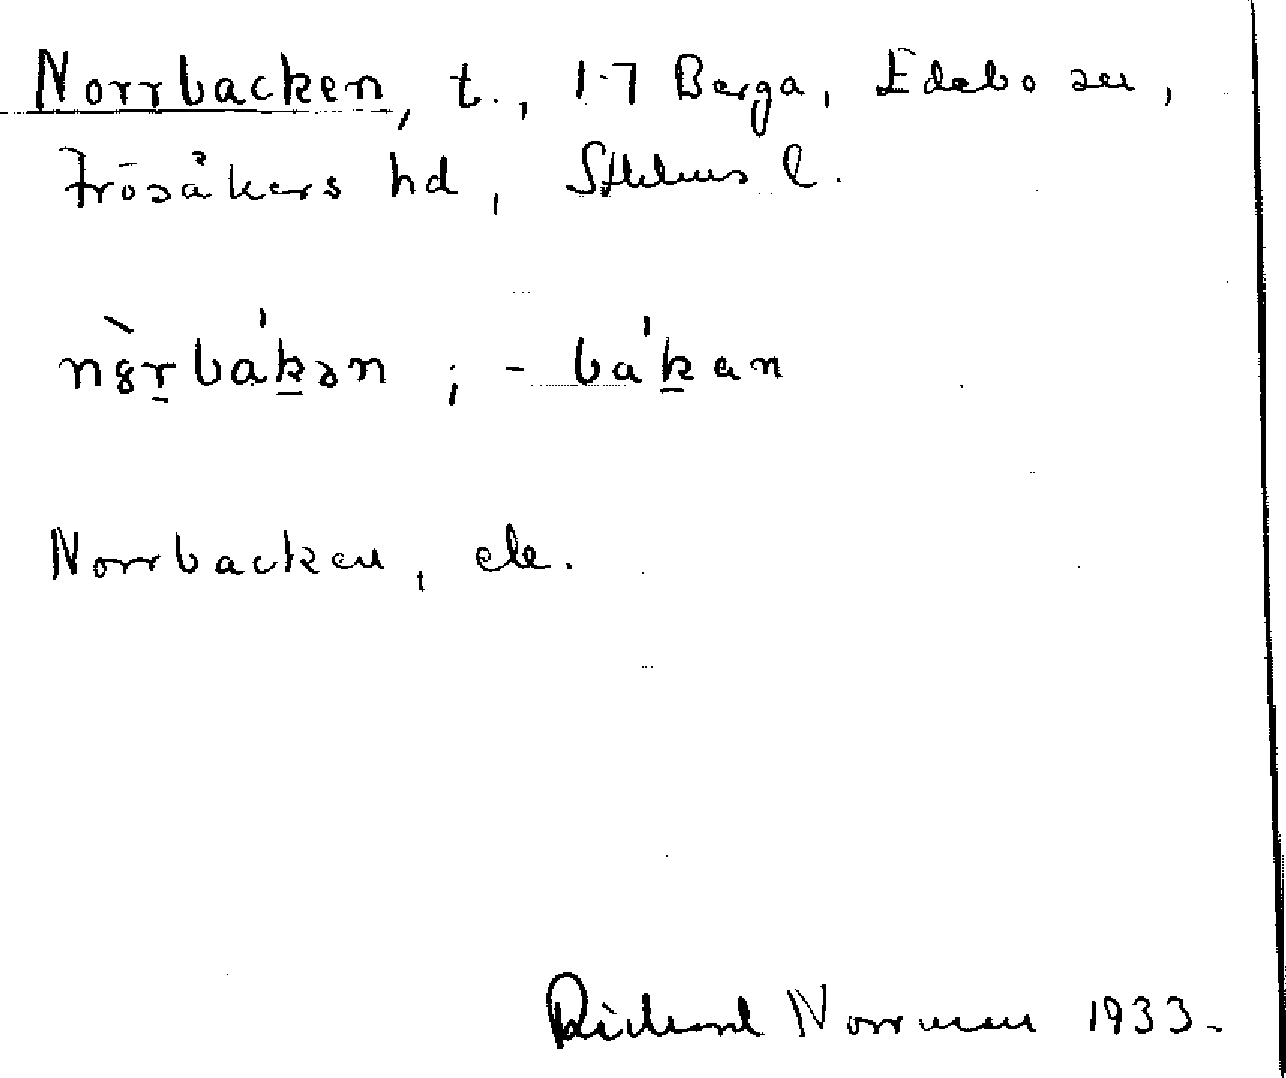 Norrbacken, t., 1.7 Berga, Edebo sn,
Frösåkers hd, Sthlms l.
nȣ̀r̲bák̲ən ; - bák̲an
Norrbacken, ele.
Rickard Norrman 1933.